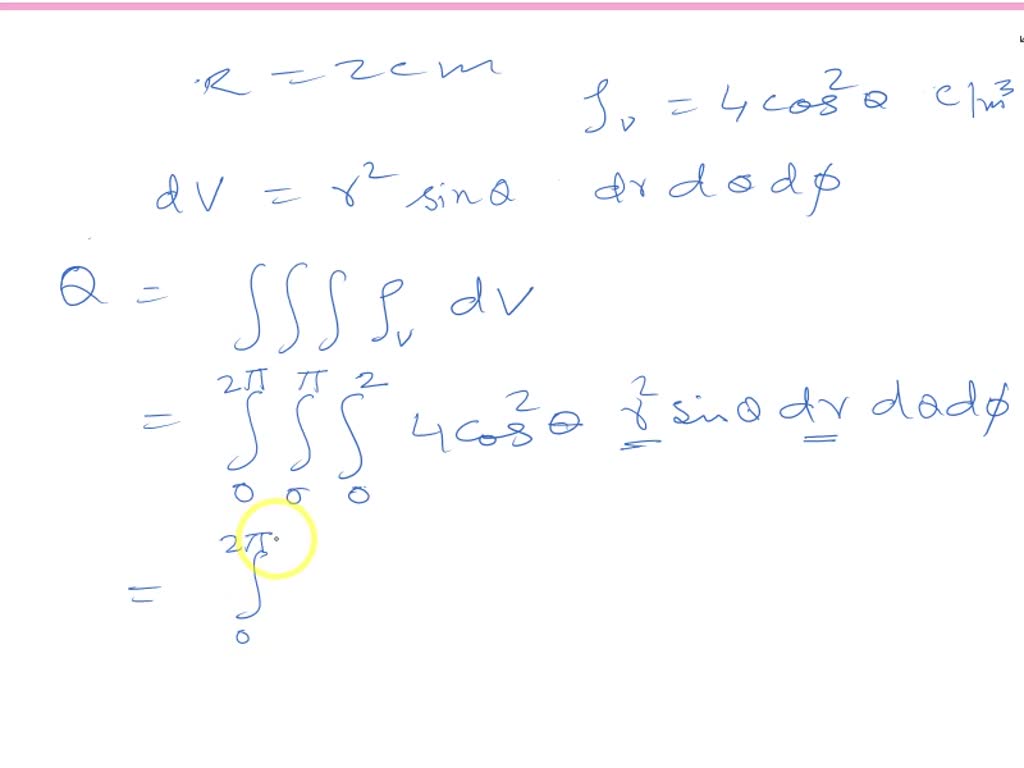 R = 2cm
ρᵥ = 4cos²θ C/m³
dV = r² sinθ dr dθ dϕ
Q = ∫∫∫ ρᵥ dV
= ∫₀^2π ∫₀^π ∫₀^2 4cos²θ r² sinθ dr dθ dϕ
= ∫₀^2π